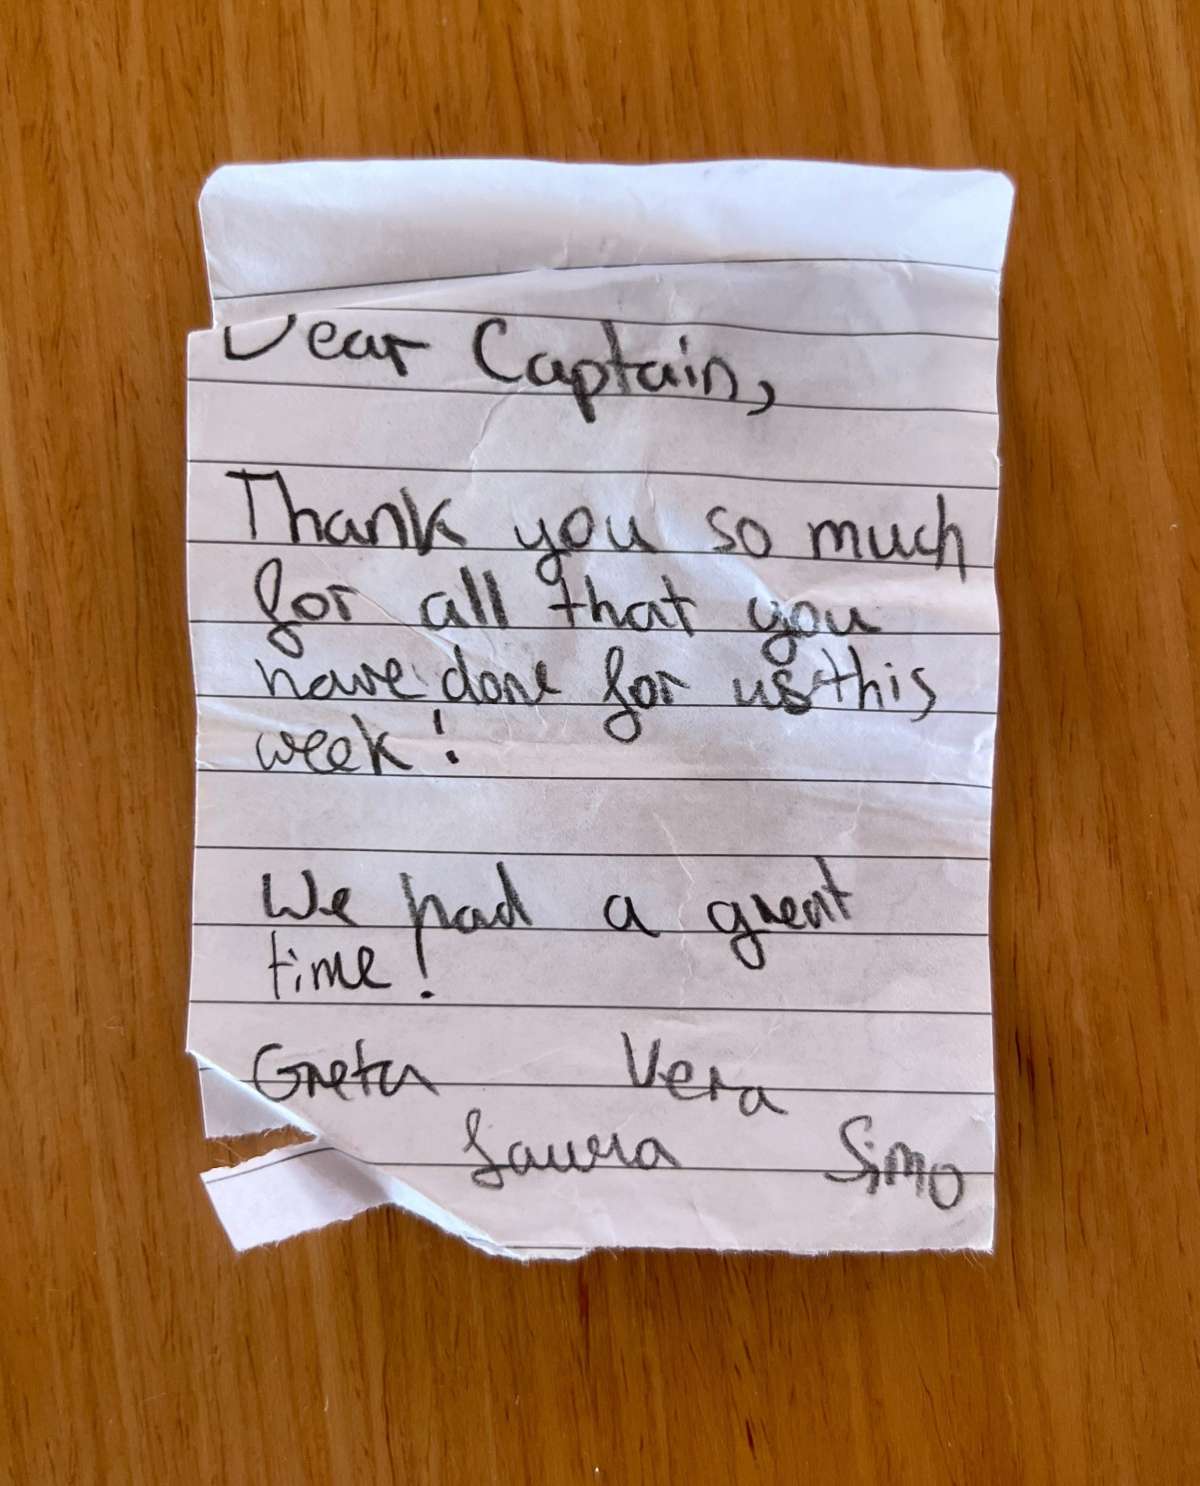 Dear Captain,
Thank you so much
for all that you
have done for us this
week!
We had a great
time!
Greta Vera
Laura Simo